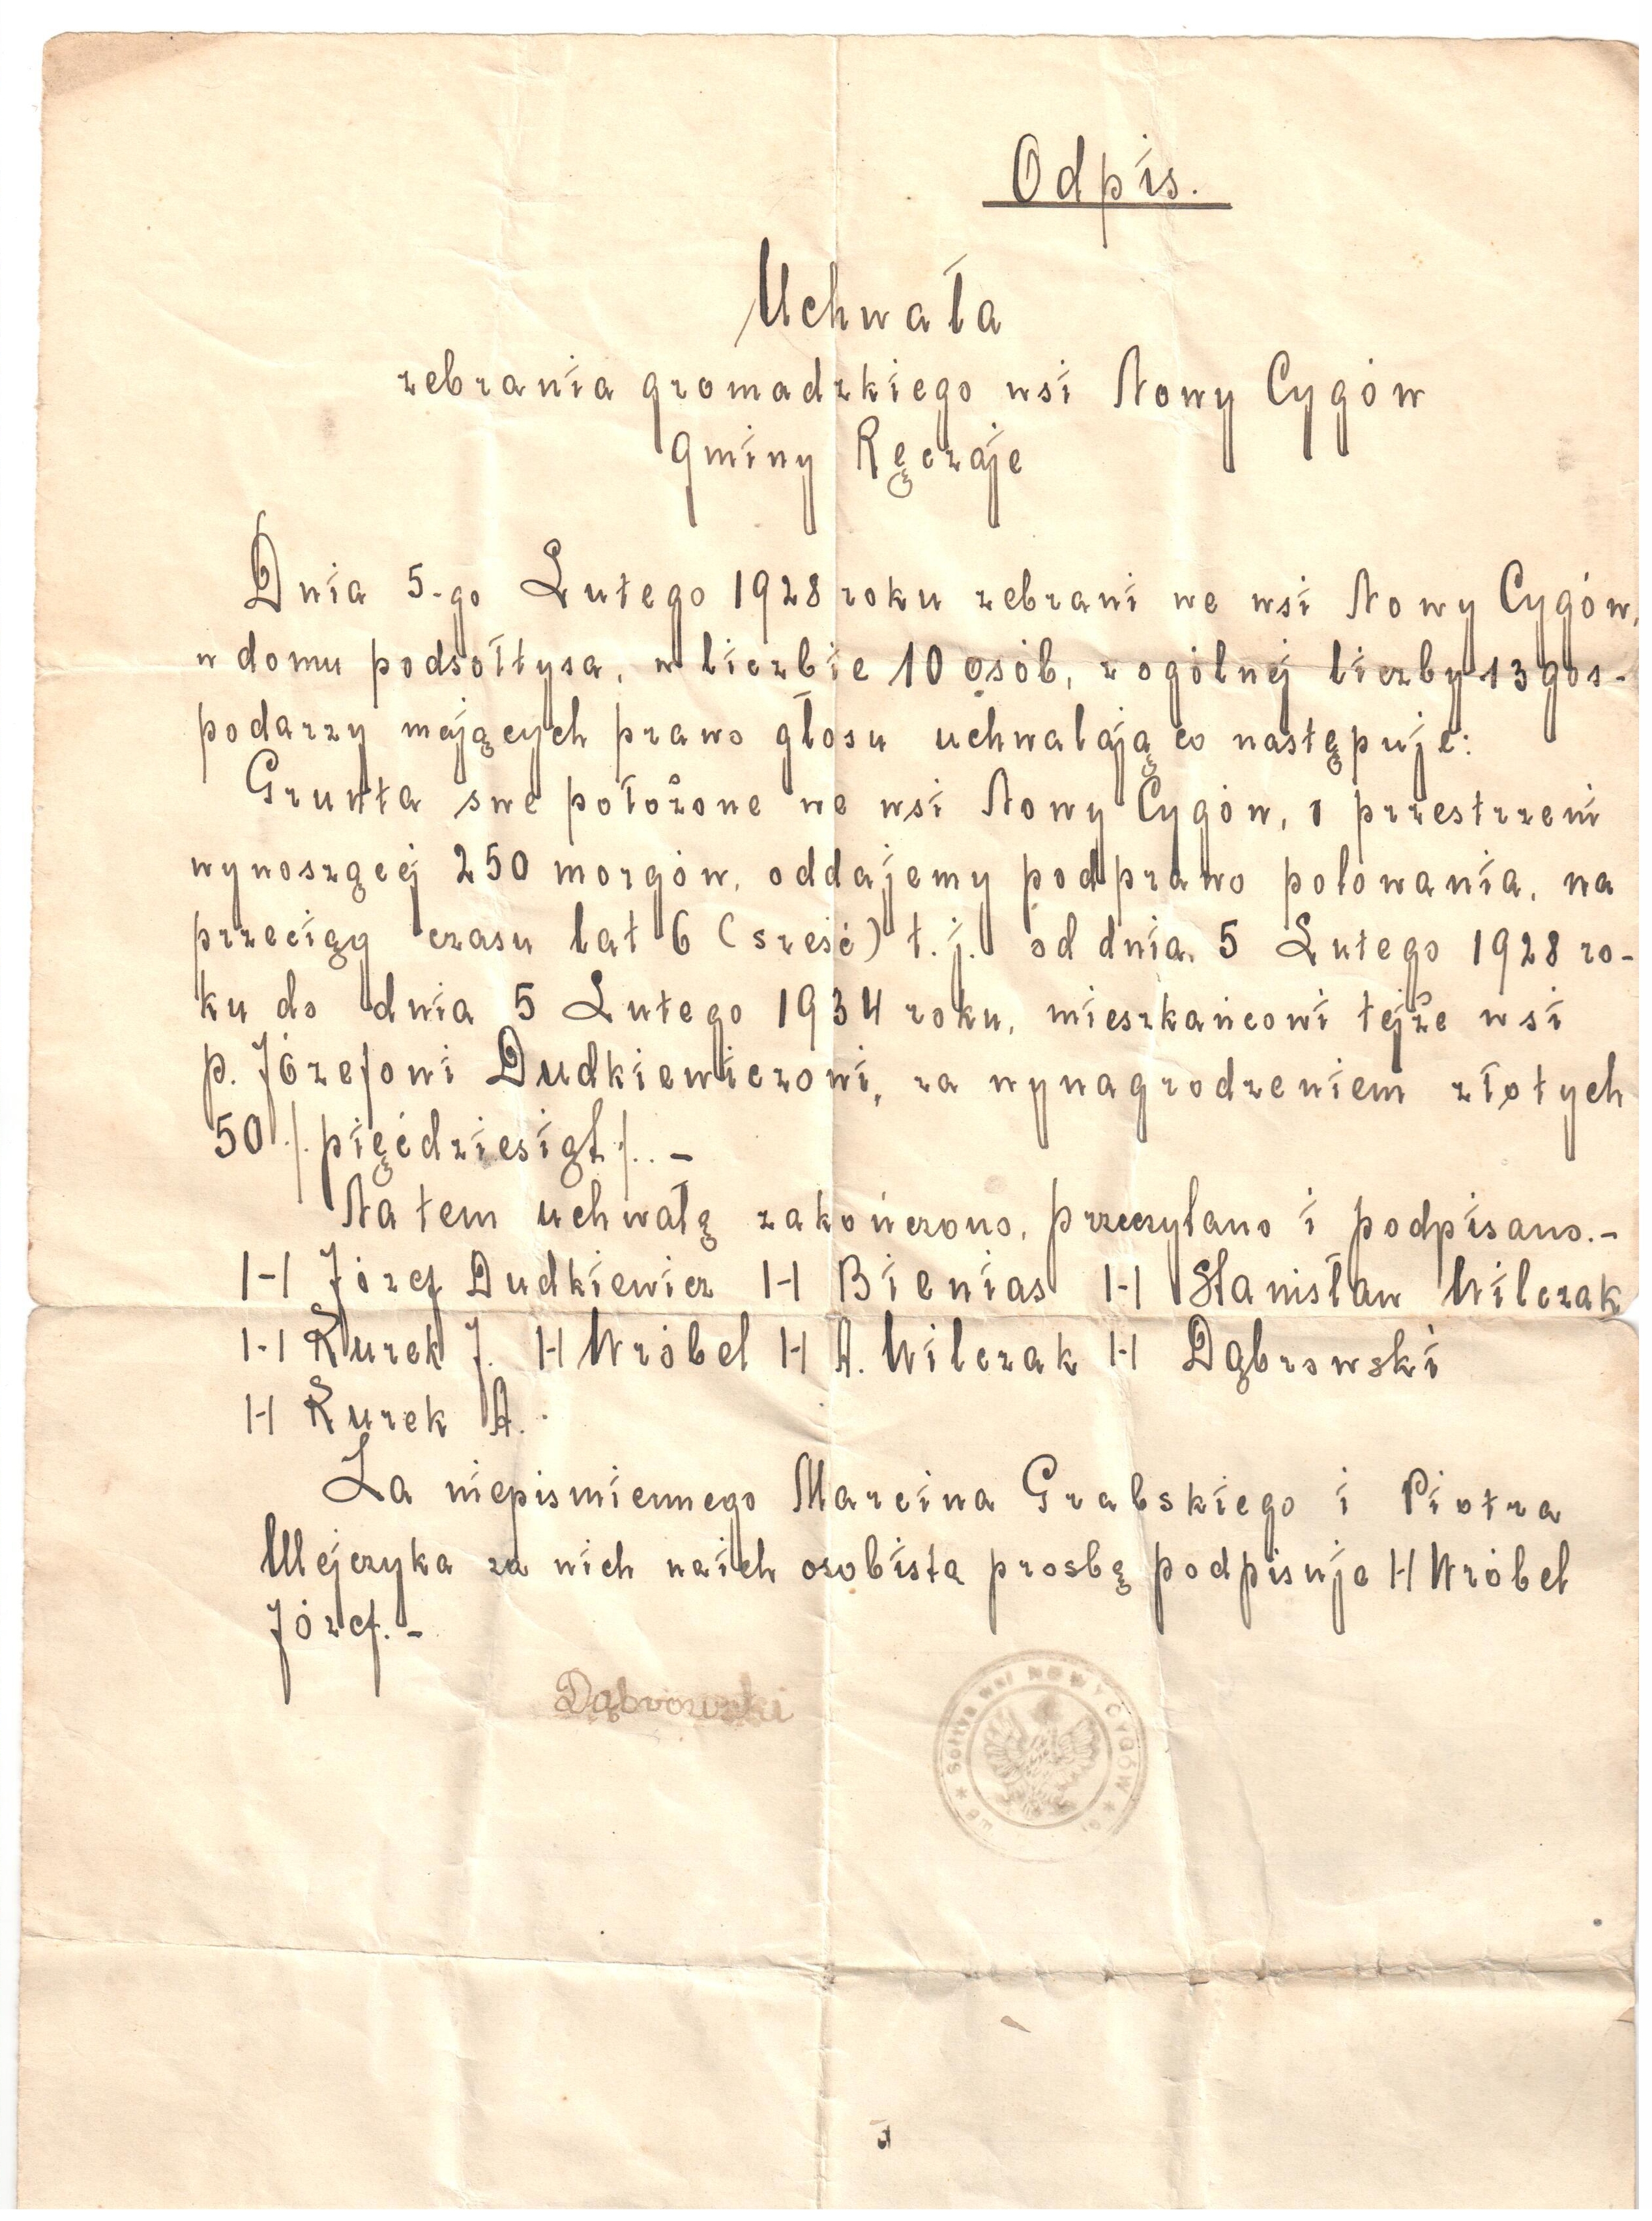 Odpis.
Uchwała
zebrania gromadzkiego wsi Nowy Cygów
Gminy Ręczaje
Dnia 5-go Lutego 1928 roku zebrani we wsi Nowy Cygów,
w domu podsołtysa, w liczbie 10 osób, z ogólnej liczby 13 gos-
podarzy mających prawo głosu uchwalają co następuje:
Grunta swe położone we wsi Nowy Cygów, o przestrzeni
wynoszącej 250 morgów, oddajemy pod prawo polowania, na
przeciąg czasu lat 6 (sześć) t.j. od dnia 5 Lutego 1928 ro-
ku do dnia 5 Lutego 1934 roku, mieszkańcowi tejże wsi
p. Józefowi Dudkiewiczowi, za wynagrodzeniem złotych
50 /.pięćdziesiąt/.. -
Na tem uchwałę zakończono, przeczytano i podpisano.-
/-/ Józef Dudkiewicz /-/ Bienias /-/ Stanisław Wilczak
/-/ Kurek J. /-/ Wróbel /-/ A. Wilczak /-/ Dąbrowski
/-/ Kurek A.
Za niepismiennego Marcina Grabskiego i Piotra
Wejczyka za nich naich osobista prosbę podpisuje /-/ Wróbel
Józef. -
Dąbrowski
Sołtys wsi NOWY CYGÓW